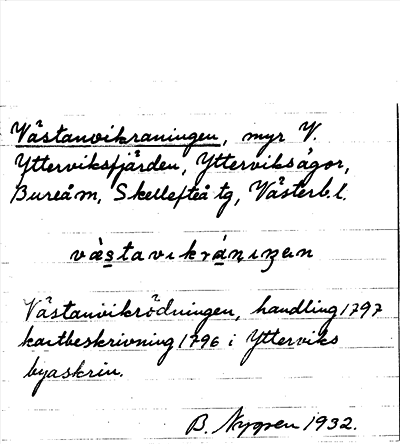 Västanvikraningen, myr V.
Ytterviksfjärden, Ytterviksägor,
Bureå m, Skellefteå tg, Västerb. l.
Västanvikrödningen, handling 1797
kartbeskrivning 1796 i Ytterviks
byaskrin.
B. Nygren 1932.